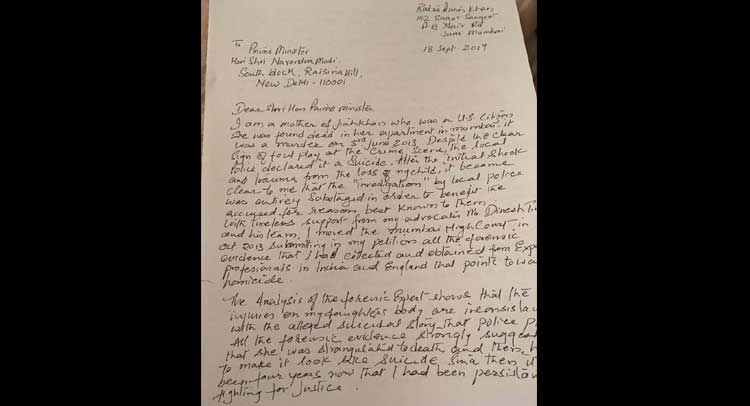 Rabia Amin Khan
102 Sagar Sangeet
A.B Nair Rd
Juhu Mumbai
18 Sept. 2019
To
Prime Minister
Hon Shri Narendra Modi.
South block, Raisina Hill,
New Delhi - 110001
Dear Shri Hon Prime minister,
I am a mother of Jiah Khan who was a U.S. Citizen
She was found dead in her apartment in mumbai. it
was a murder on 3rd June 2013. Despite the clear
sign of foul play at the crime scene, the local
Police declared it a Suicide. After the initial shock
and trauma from the loss of my child, it became
clear to me that the "investigation" by local police
was entirely Sabotaged in order to benefit the
accused for reasons best known to them.
with tireless support from my advocates Mr Dinesh
and his team, I moved the mumbai High Court in
oct 2013 submitting in my petition all the forensic
evidence that I had collected and obtained from
Profesionals in India and England that points
homicide.
The Analysis of the forensic Expert shows that the
injuries on my daughters body are
with the alleged suicidal story that police
All the forensic evidence strongly
that she was strangulated to death and then
to make it look like Suicide. Since then it
been four years now that I had been
fighting for Justice.